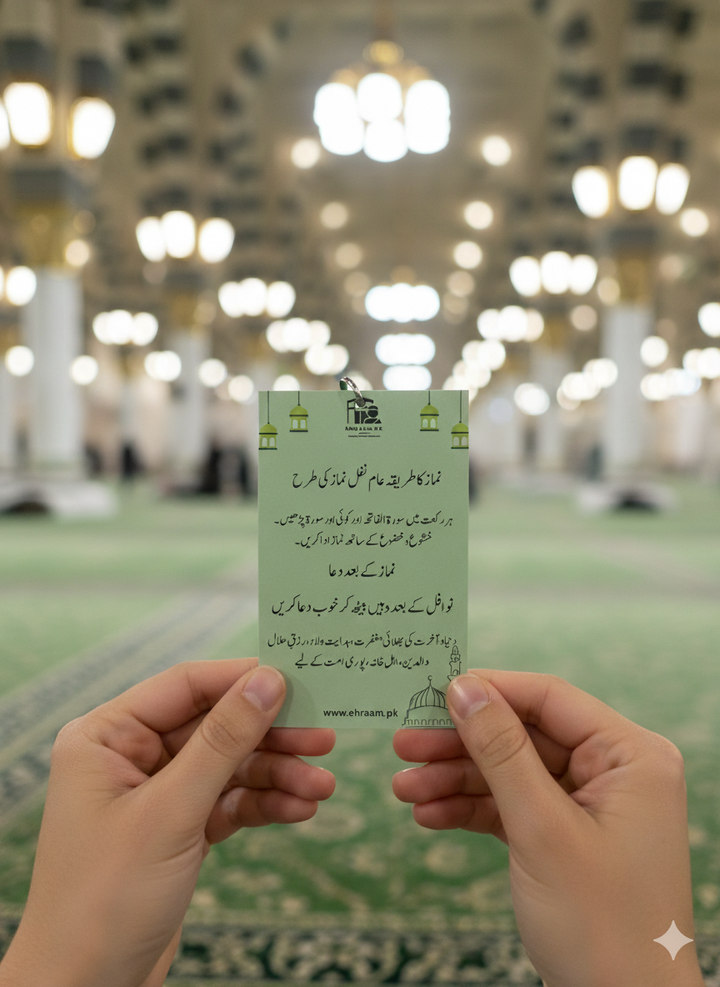 نماز کا طریقہ عام نفل نماز کی طرح
ہر رکعت میں سورۃ الفاتحہ اور کوئی اور سورۃ پڑھیں۔
خشوع و خضوع کے ساتھ نماز ادا کریں۔
نماز کے بعد دعا
نوافل کے بعد وہیں بیٹھ کر خوب دعا کریں
آخرت کی بھلائی، مغفرت، ہدایت، رزقِ حلال
والدین، اہل خانہ، پوری امت کے لیے
www.ehraam.pk